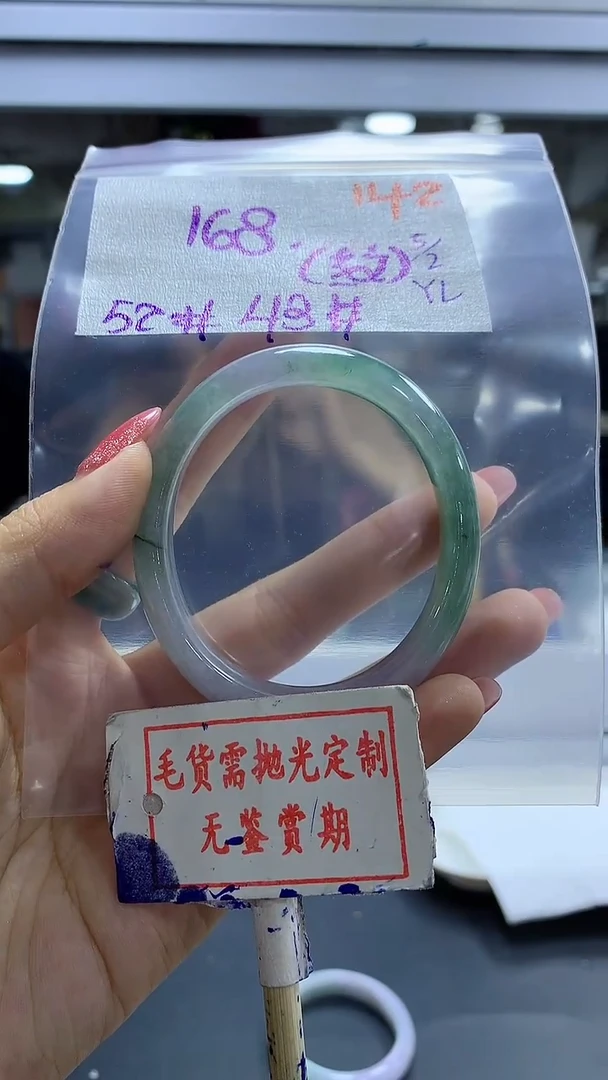 11+2
168.
5/2
YL
52# 48#
毛货需抛光定制
无鉴赏期